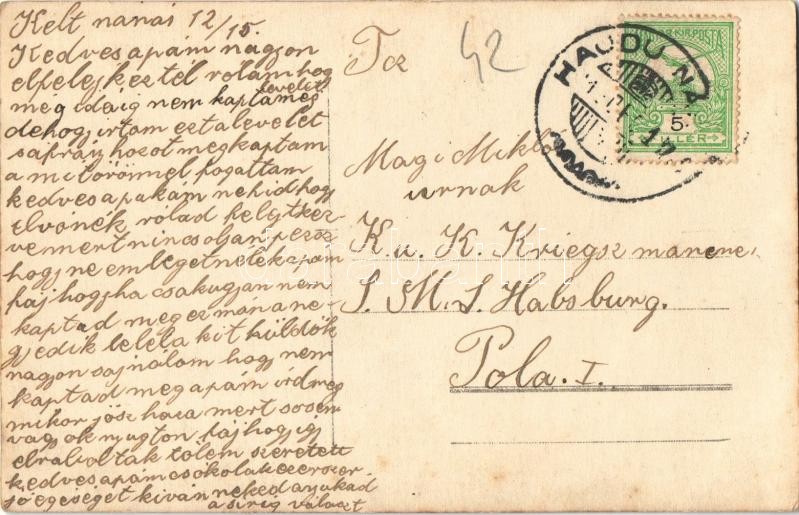 Kelt nanás 12/15.
Kedves apám nagyon
elfelejkeztél rolam hog
levelet
meg idáig nem kaptam es
dehogy irtam ezt a levelet
sapráuj hozot megkaptam
a mi törönnel fogattam
kedves apakám ne hid hogy
elvónék rolad felejtkez
ve mert nincs oljan perez
hogy ne emlegetnélek apám
fáj hogy ha csakugyan nem
kaptad meg ez mán a ne
gyedik levéla kit küldök
nagyon sajnálom hogy nem
kaptad meg apám ird meg
mikor jösz haza mert sosem
vagyok nyugton fáj hogy igy
elraboltak tölem szeretett
kedves apám csókolak ezerszer
jó egeséget kiván neked anyukád
a sirig választ
Tcz
42
Magi Miklós
urnak
K. u. K. Kriegsz marene.
S. M. S. Habsburg.
Pola. I.
HAJDU NÁ
MAGY. KIR. POSTA
5
FILLÉR